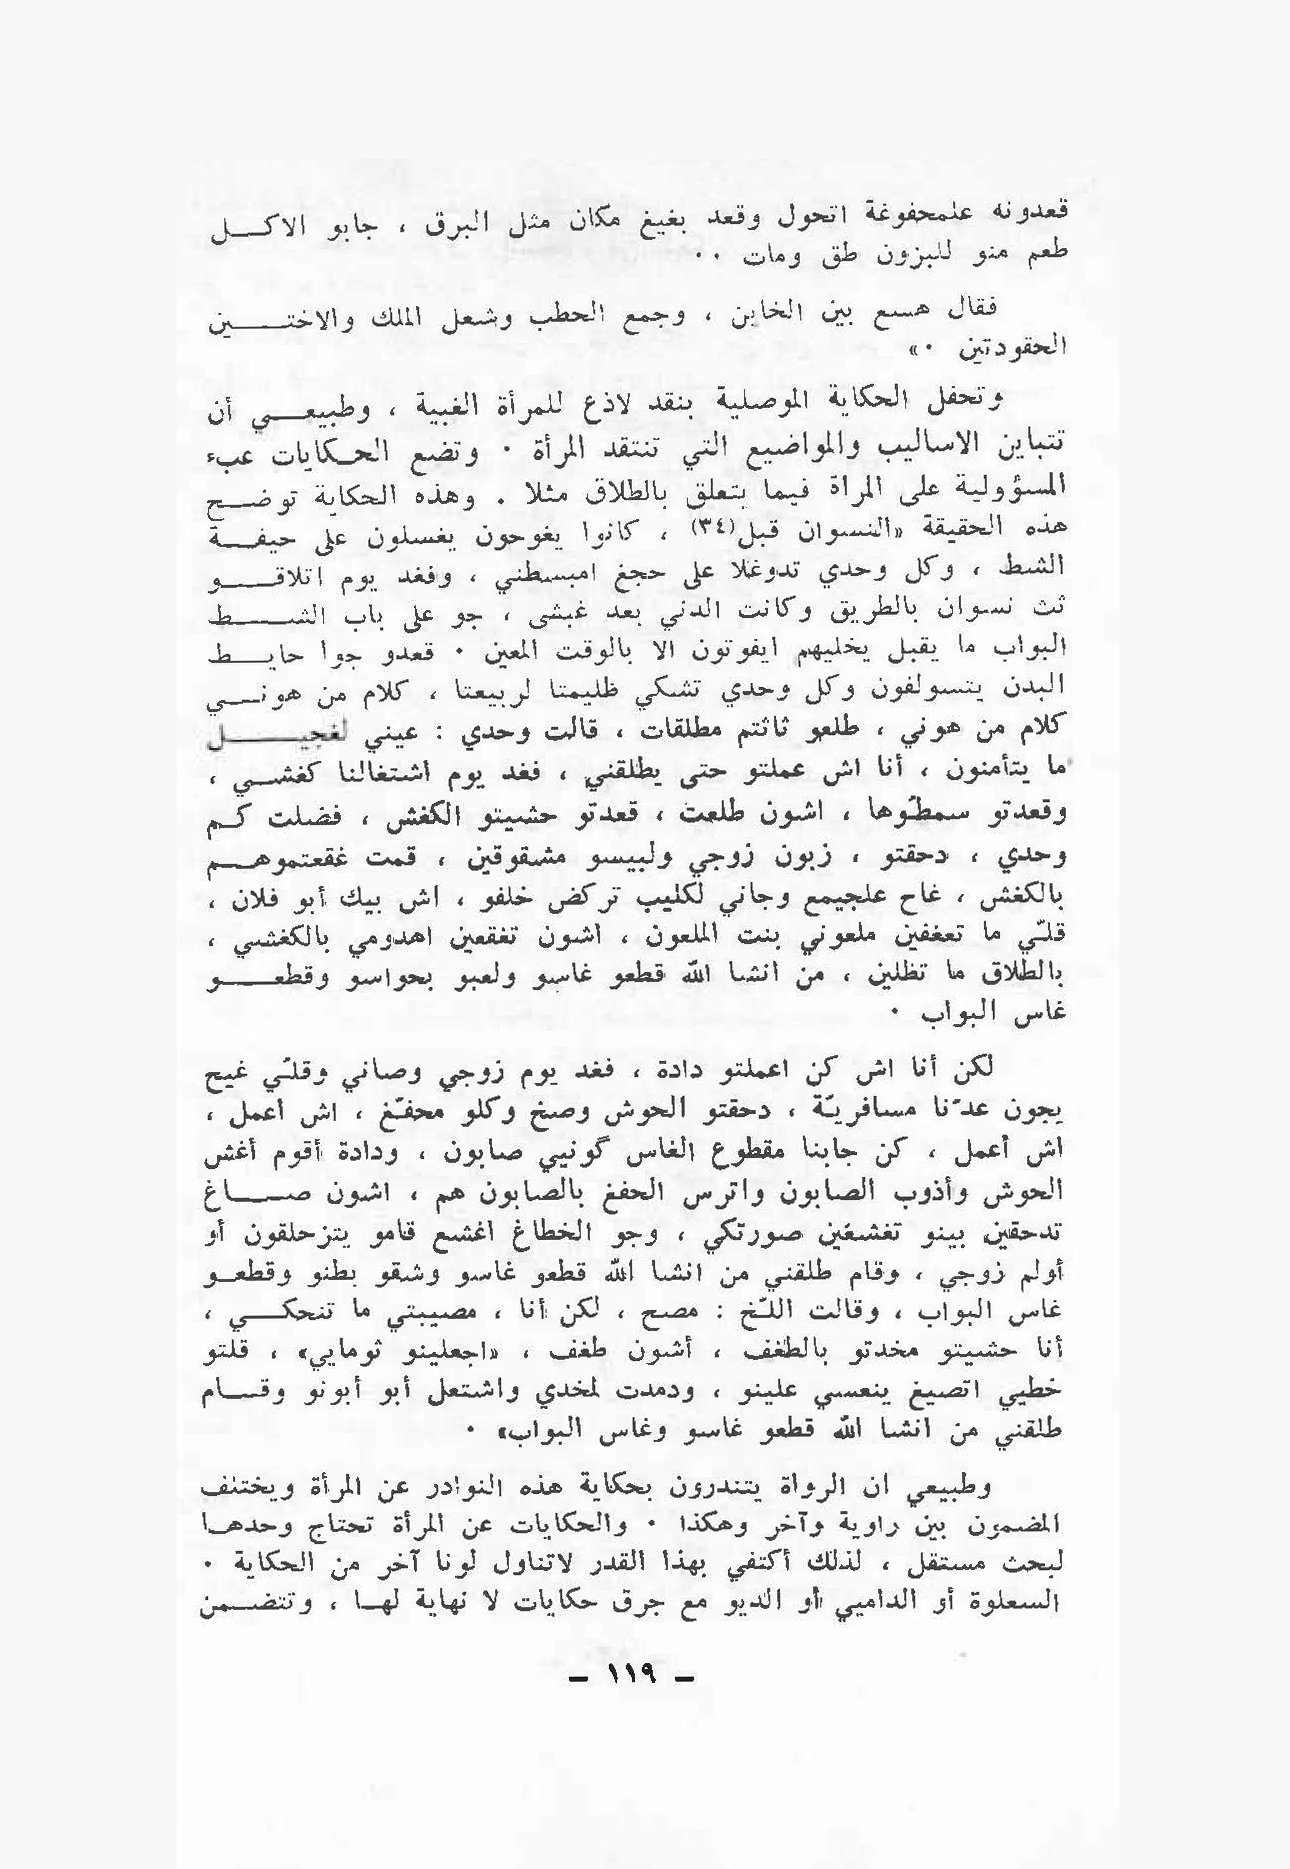 قعدونه علمحفوغة اتحول وقعد بغيغ مكان مثل البرق ، جابو الاكل
طعم منو للبزون طق ومات ۰۰
فقال هسع بين الخاين ، وجمع الحطب وشعل الملك والاختين
الحقودتين ۰»
وتحفل الحكاية الموصلية بنقد لاذع للمرأة الغبية ، وطبيعي أن
تتباين الاساليب والمواضيع التي تنتقد المرأة ۰ وتضع الحكايات عبء
المسؤولية على المرأة فيما يتعلق بالطلاق مثلا . وهذه الحكاية توضح
هذه الحقيقة «النسوان قبل(٣٤) ، كانوا يغوحون يغسلون على حيفة
الشط ، وكل وحدي تدوغلا على حجغ امبسطني ، وفغد يوم اتلاقو
ثث نسوان بالطريق وكانت الدني بعد غبشى ، جو على باب الشط
البواب ما يقبل يخليهم ايفوتون الا بالوقت المعين ۰ قعدو جوا حايط
البدن يتسولفون وكل وحدي تشكي ظليمتا لربيعتا ، كلام من هوني
كلام من هوني ، طلعو ثاثتم مطلقات ، قالت وحدي : عيني لغجيل
ما يتأمنون ، أنا اش عملتو حتى يطلقني ، فغد يوم اشتغالنا كغشي ،
وقعدتو سمطّوها ، اشون طلعت ، قعدتو حشيتو الكغش ، فضلت كم
وحدي ، دحقتو ، زبون زوجي ولبيسو مشقوقين ، قمت غقعتموهم
بالكغش ، غاح علجيمع وجاني لكليب تركض خلفو ، اش بيك أبو فلان ،
قلّي ما تعغفين ملعوني بنت الملعون ، اشون تغقعين اهدومي بالكغشي ،
بالطلاق ما تظلين ، من انشا الله قطعو غاسو ولعبو بحواسو وقطعو
غاس البواب ۰
لكن أنا اش كن اعملتو دادة ، فغد يوم زوجي وصاني وقلّي غيح
يجون عدّنا مسافريّة ، دحقتو الحوش وصخ وكلو محفّغ ، اش أعمل ،
اش أعمل ، كن جابنا مقطوع الغاس گونيي صابون ، ودادة أقوم أغش
الحوش وأذوب الصابون واترس الحفغ بالصابون هم ، اشون صاغ
تدحقين بينو تغشغين صورتكي ، وجو الخطاغ اغشع قامو يتزحلقون أو
أولم زوجي ، وقام طلقني من انشا الله قطعو غاسو وشقو بطنو وقطعو
غاس البواب ، وقالت اللّخ : مصح ، لكن أنا ، مصيبتي ما تنحكي ،
أنا حشيتو مخدتو بالطغف ، أشون طغف ، «اجعلينو ثومايي» ، قلتو
خطيي اتصيغ ينعسي علينو ، ودمدت لمخدي واشتعل أبو أبونو وقام
طلقني من انشا الله قطعو غاسو وغاس البواب» ۰
وطبيعي ان الرواة يتندرون بحكاية هذه النوادر عن المرأة ويختلف
المضمون بين راوية وآخر وهكذا ۰ والحكايات عن المرأة تحتاج وحدها
لبحث مستقل ، لذلك أكتفي بهذا القدر لاتناول لونا آخر من الحكاية ۰
السعلوة أو الداميي أو الديو مع جرق حكايات لا نهاية لها ، وتتضمن
– ١١٩ –